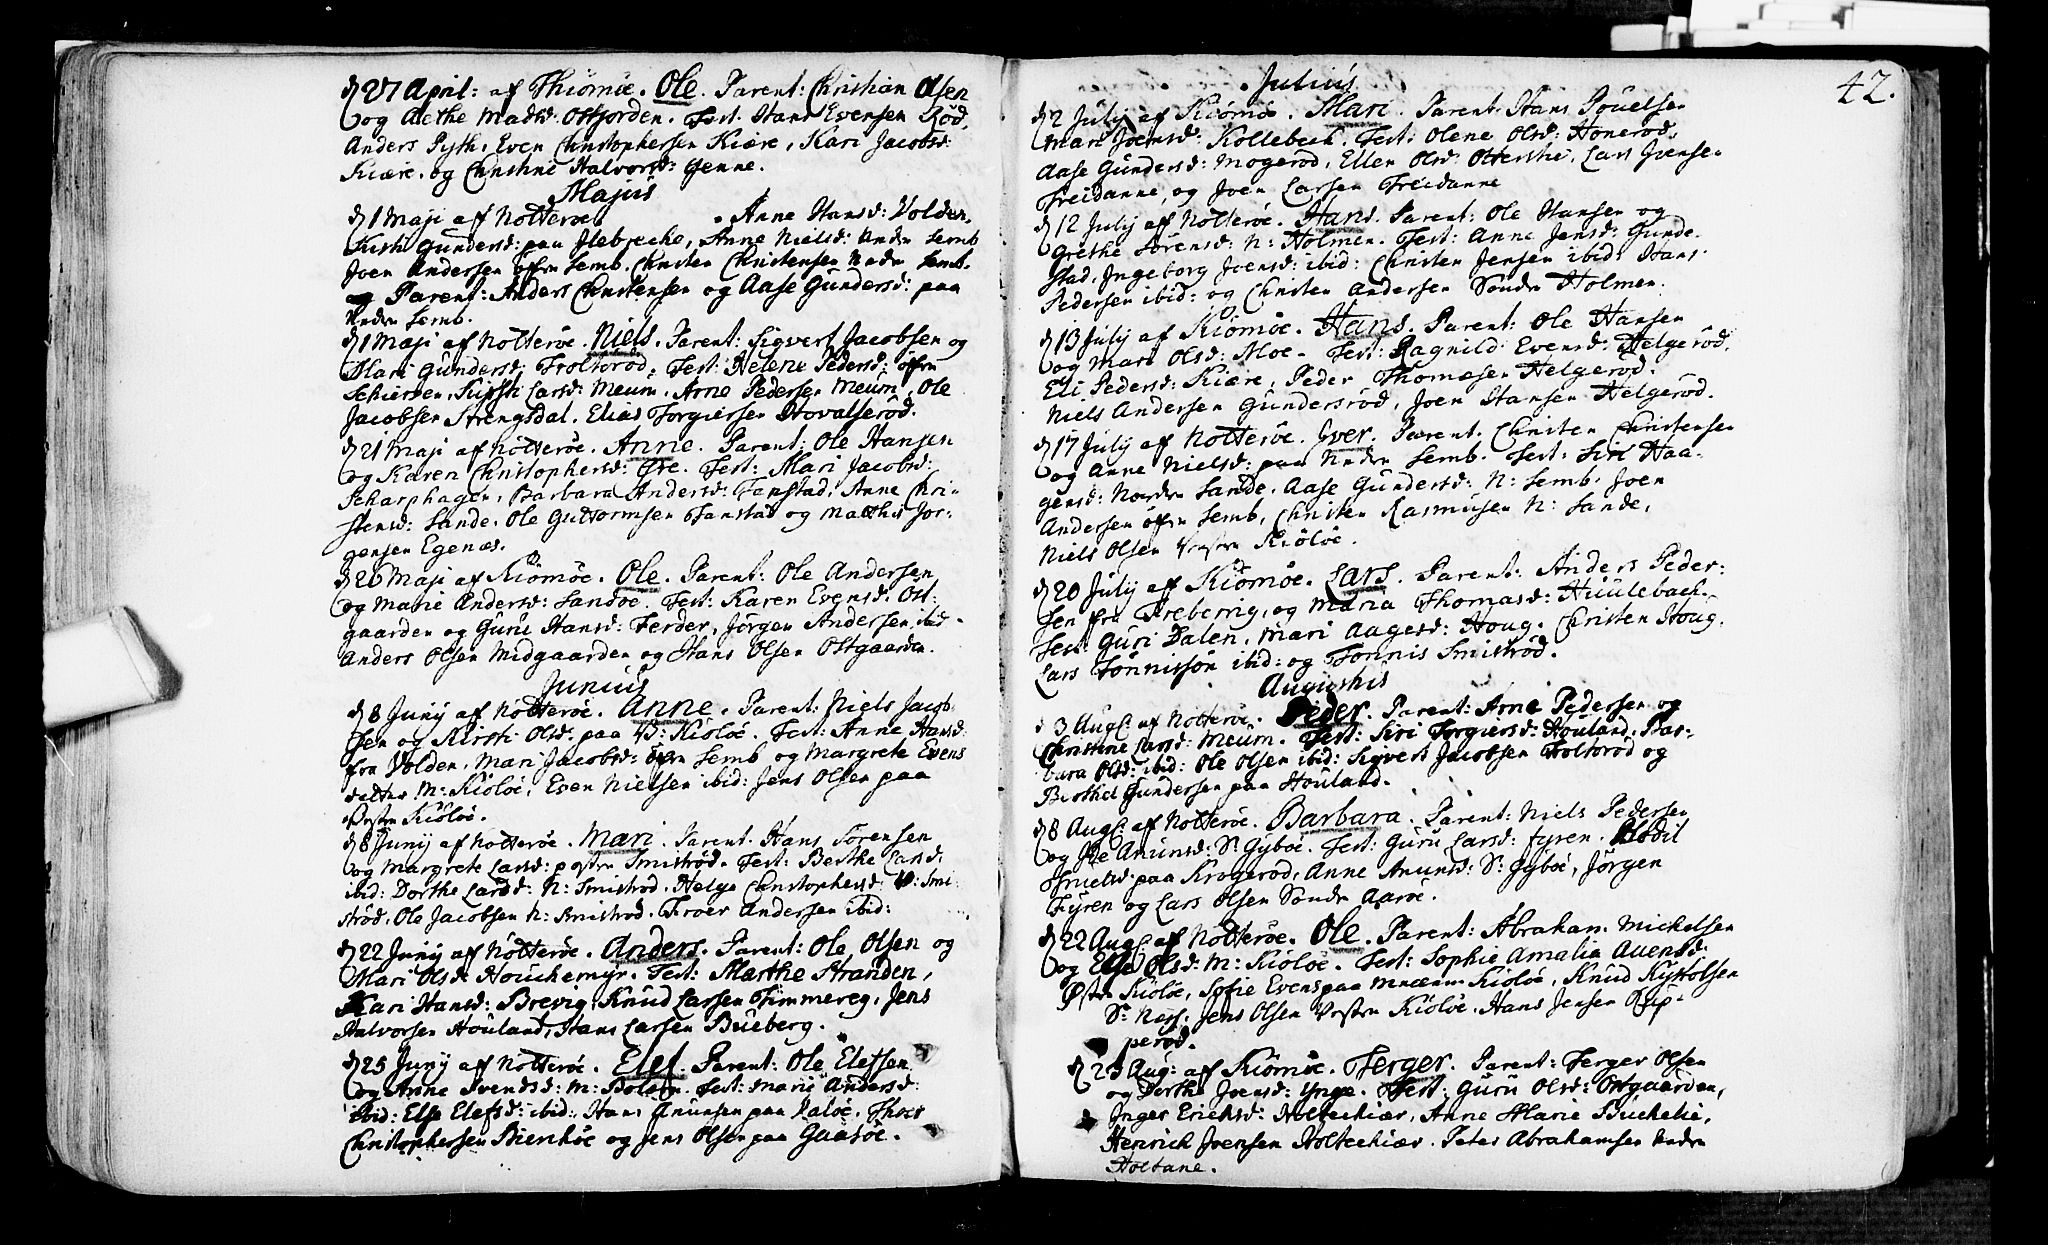 d 27 April: af Thiömöe. Ole. Parent: Christian Olsen
og Aethe Madsd: Ostjorden. Test. Hans Evensen Röd,
Anders Pyth, Even Christophersen Kiære, Kari Jacobsd:
Kiære. og Christine Halvorsd: Genne.
Majus
d 1 Maji af Nötteröe . Anne Hansd: Volden,
Kirsti Gundersd: paa Ilebrecke, Anne Nielsd: Nedre Semb
Joen Andersen öfre Semb. Christen Christensen Nedre Semb.
og Parent: Anders Christensen og Aase Gundersd: paa
Nedre Semb.
d 1 Maji af Nötteröe. Niels. Parent: Sigvert Jacobsen og
Mari Gundersd: Froltoröd. Test: Helene Pedersd: öfre
Schiersen, Kirsti Larsd: Meum. Arne Pedersen Meum, Ole
Jacobsen Strengsdal. Elias Torgiersen Hovalseröd.
d 21 Maji af Nötteröe. Anne. Parent: Ole Hansen
og Karen Christophersd: Öre. Test: Mari Jacobsd:
Scharphagen, Barbara Andersd: Fanstad, Anne Chri-
stensd: Sande. Ole Guttormsen Fanstad og Matthis Jör-
gensen Egenæs.
d 26 Maji af Kiömöe. Ole. Parent: Ole Andersen
og Marie Andersd: Sandöe. Test: Karen Evensd: Ost-
gaarden og Guru Hansd: Ferder, Jörgen Andersen ibid-
Anders Olsen Midgaarden og Hans Olsen Ostgaarden.
Junius
d 8 Junij af Nötteröe. Anne. Parent: Niels Jacob-
sen og Kirsti Olsd: paa V: Kiölöe. Test: Anne Hansd:
fra Volden, Mari Jacobsd: öfre Semb og Margrete Evens
datter M: Kiölöe, Even Nielsen ibid: Jens Olsen paa
Vestre Kiölöe.
d 8 Junij af Nötteröe. Mari. Parent. Hans Sörensen
og Margrete Larsd: Smiströd. Test: Berthe Larsd:
ibid: Dorthe Larsd: N: Smiströd. Helge Christophersd: V: Smi-
ströd, Ole Jacobsen N: Smiströd. Froer Andersen ibid:
d 22 Junij af Nötteröe. Anders. Parent: Ole Olsen og
Mari Olsd: Houchemyr. Test: Marthe Stranden,
Kari Hansd: Brevig, Knud Larsen Fimmereg, Jens
Halvorsen Houland, Hans Larsen Bueberg.
d 25 Junij af Nötteröe. Elef. Parent: Ole Elefsen
og Anne Svendsd: M: Bolærn. Test: Marie Andersd:
ibid: Else Elefsd: ibid: Hans Anunsen paa Valöe. Thoer
Christophersen Bienköe og Jens Olsen paa Gaasöe.
42.
Julius
d 2 Julij af Kiömöe. Mari. Parent. Hans Povelsen
Mari Joensd: Kollebech. Test: Olene Olsd: Honeröd,
Aase Gundersd: Mogeröd, Ellen Olsd: Lars Joensen
Freidanne, og Joen Larsen Freidanne
d 12 Julij af Nötteröe. Hans. Parent: Ole Hansen og
Grethe Sörensd: N: Holmen. Test: Anne Jensd: Gunde-
stad, Ingeborg Joensd: ibid: Christen Jensen ibid: Hans
Pedersen ibid: og Christen Andersen Söndre Holmen.
d 13 Julij af Kiömöe. Hans. Parent: Ole Hansen
og Mari Olsd: Moe. Test: Ragnild Evensd: Helgeröd,
Eli Pedersd: Kiære, Peder Thomæsen Helgeröd.
Niels Andersen Gundersröd, Joen Hansen Helgeröd.
d 17 Julij af Nötteröe. Iver. Parent. Christen Christensen
og Anne Nielsd: paa Nedre Semb. Test: Siri Haa-
gensd: Nordre Sande, Aase Gundersd: N: Semb. Joen
Andersen öfre Semb, Christen Rasmusen N: Sande,
Niels Olsen Vestre Kiölöe.
d 20 Julij af Kiömöe. Lars. Parent: Anders Peder-
sen fra Treberrig, og Maria Thomasd: Huulebach.
Test: Guri Dalen, Mari Aagesd: Houg. Christen Houg.
Lars Tönnissön ibid: og Tönnis Smiströd.
Augustus
d 3 Aug: af Nötteröe. Peder. Parent: Arne Pedersen og
Christine Larsd: Meum. Test: Siri Torgiersd: Houland. Bar-
bara Olsd: ibid: Ole Olsen ibid: Sigvert Jacobsen Foltoröd og
Berthel Gundersen paa Houland.
d 8 Aug: af Nötteröe. Barbara. Parent: Niels Pedersen
og Anunsd: Sr Gyböe. Test: Guru Larsd: Fyren. Bodil
paa Krogeröd, Anne Anunsd: Sr: Gyböe, Jörgen
Fyren og Lars Olsen Söndre Aaröe.
d 22 Aug: af Nötteröe. Ole. Parent: Abraham Mickelsen
og Else Olsd: M: Kiölöe. Test: Sophie Amalia Avensd:
Østre Kiölöe, Sofie Evens paa Kiölöe, Knud Kystolsen
Sr Næss. Jens Olsen Vestre Kiölöe. Hans Jensen Rup-
peröd.
d 23 Aug: af Kiömöe. Ferger. Parent: Ferger Olsen
og Dorthe Joensd: Ynge. Test: Guru Olsd: Ostgaarden,
Inger Erichsd: Holtechiær, Anne Marie Buchelie,
Henrich Joensen Holtechiær. Peter Abrahamsen Nedre
Holtane.